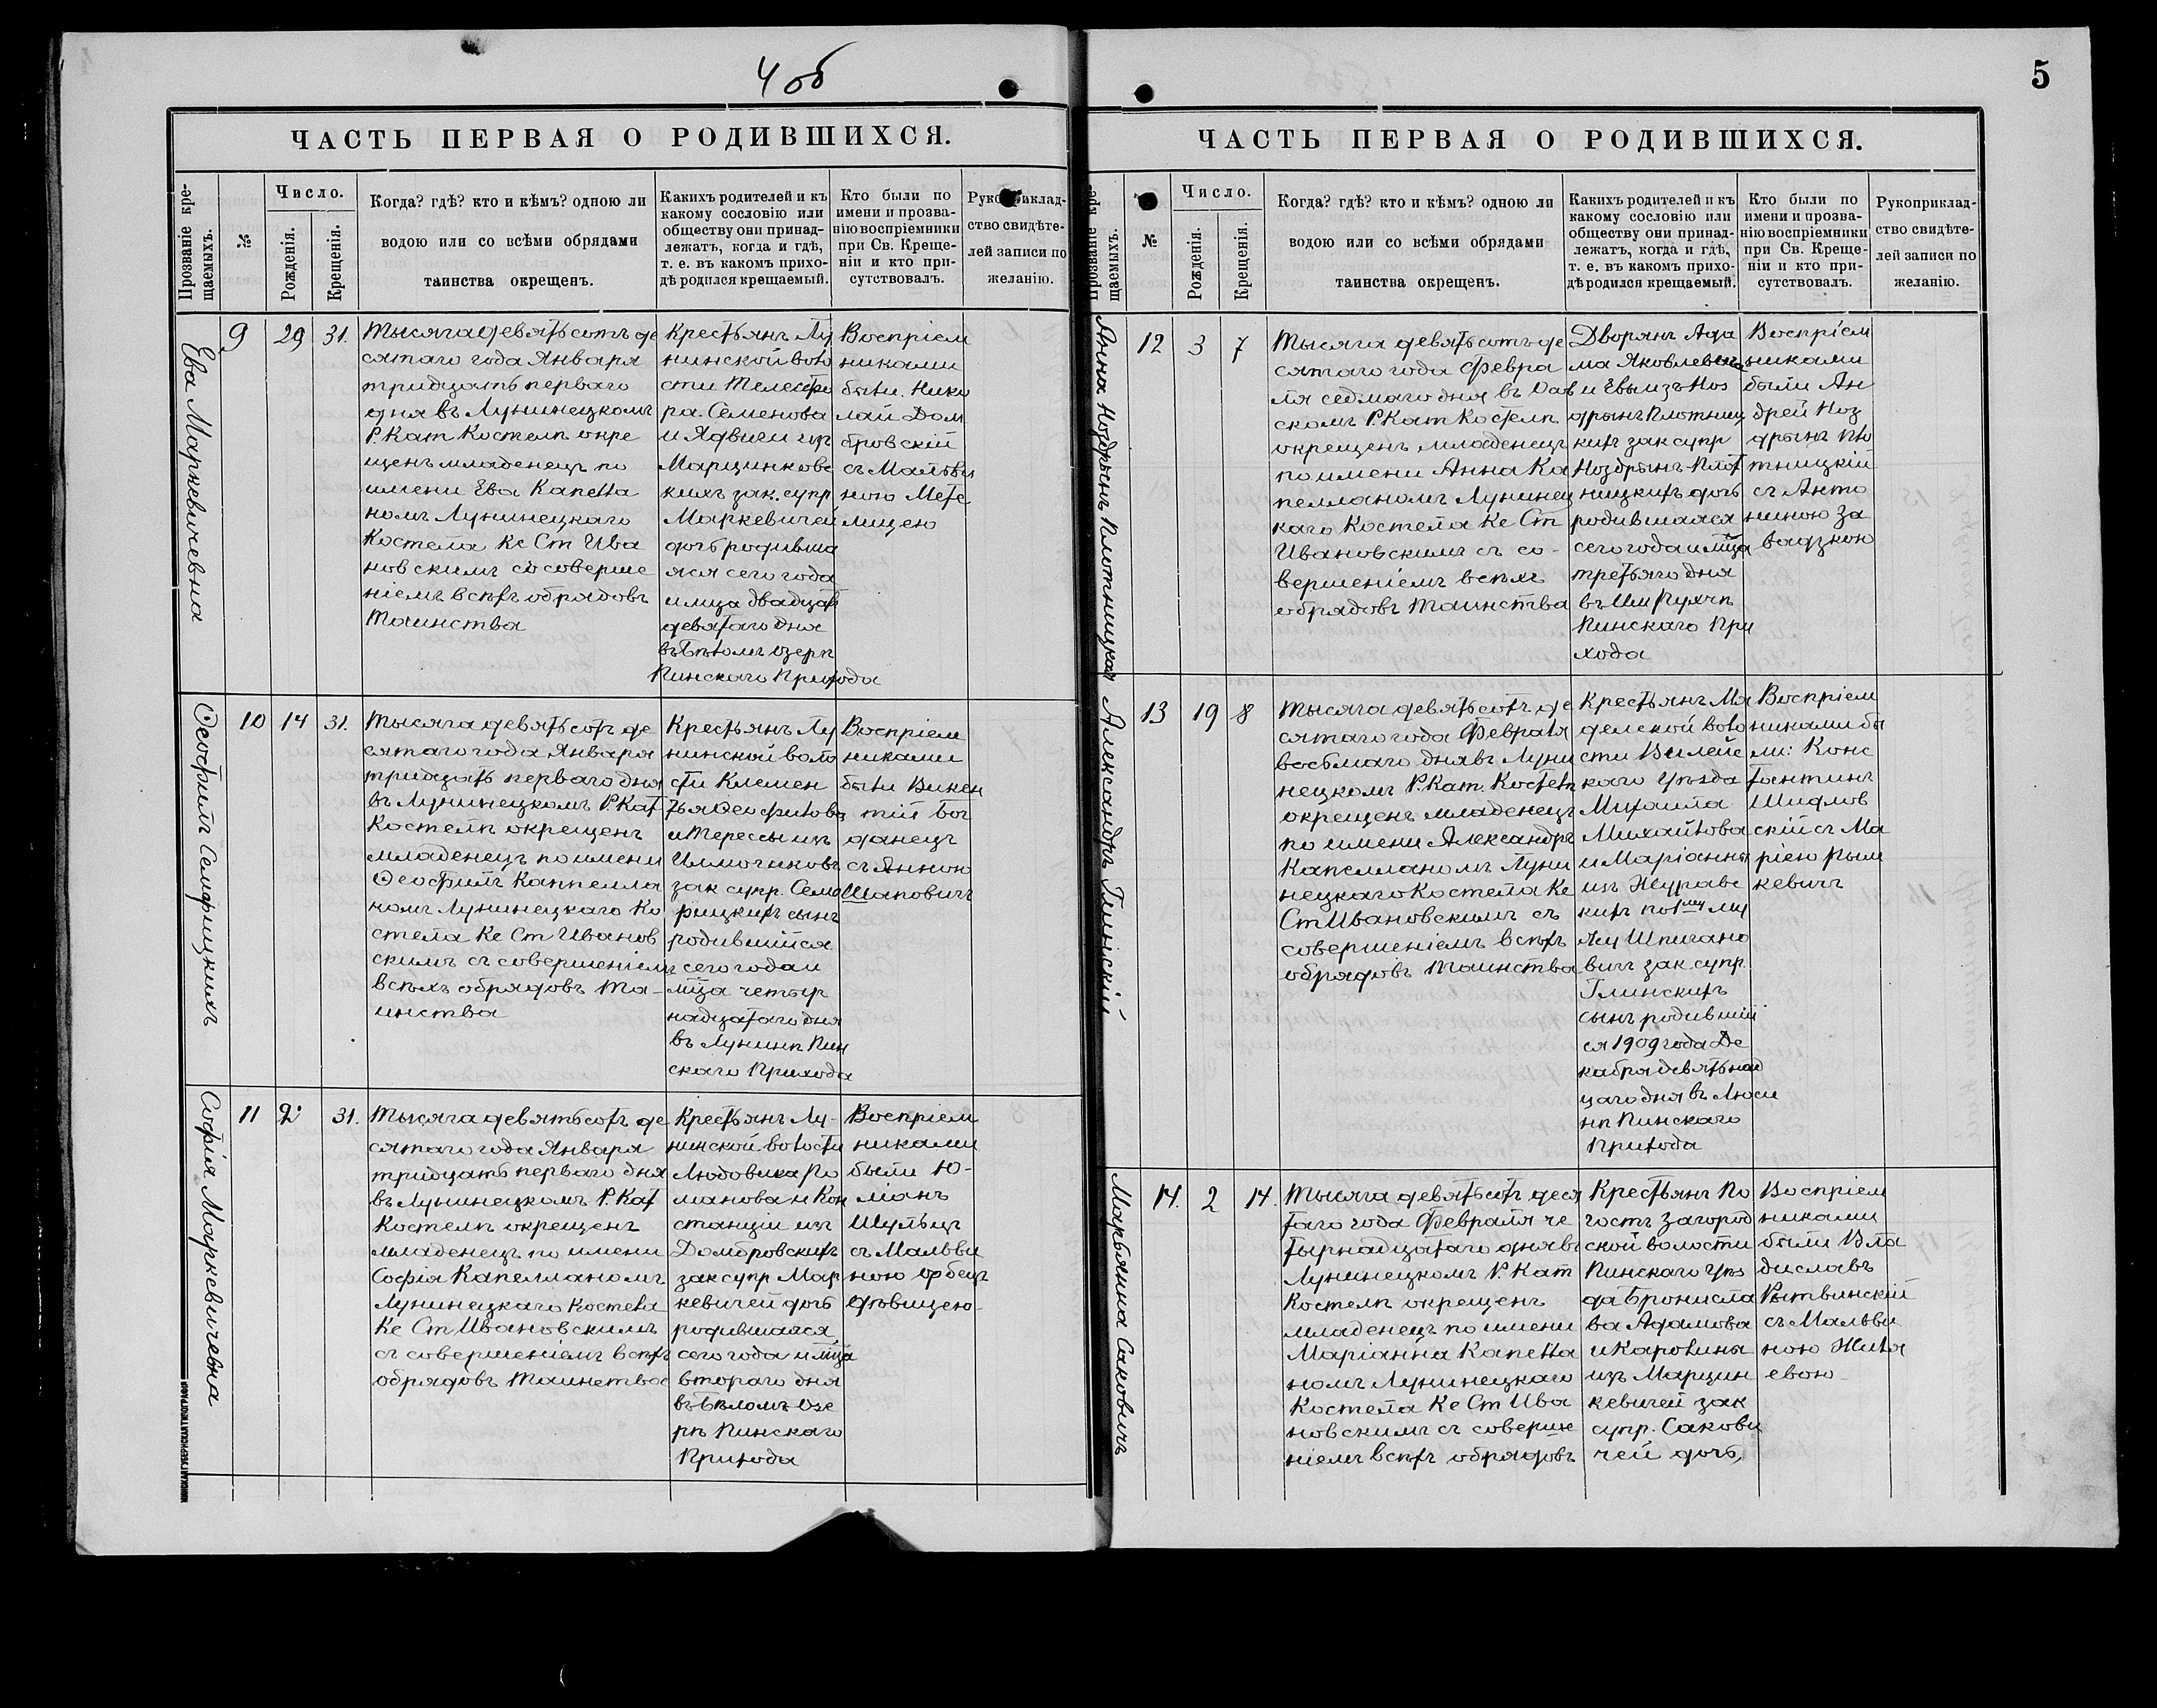 4 об
ЧАСТЬ ПЕРВАЯ О РОДИВШИХСЯ.
Прозваніе кре-
щаемыхъ.
№
Число.
Рожденія.
Крещенія.
Когда? гдѣ? кто и кѣмъ? одною ли
водою или со всѣми обрядами
таинства окрещенъ.
Какихъ родителей и къ
какому сословію или
обществу они принад-
лежатъ, когда и гдѣ,
т. е. въ какомъ прихо-
дѣ родился крещаемый.
Кто были по
имени и прозва-
нію воспріемники
при Св. Креще-
ніи и кто при-
сутствовалъ.
Рукоприклад-
ство свидѣте-
лей записи по
желанію.
Ева Маркевичевна
9
29
31.
Тысяча девятьсотъ де
сятаго года Января
тридцать перваго
дня въ Лунинецкомъ
Р. Кат Костелѣ окре
щенъ младенецъ по
имени Ева Капелла
номъ Лунинецкаго
Костела Ке Ст Ива
новскимъ со соверше
ніемъ всѣхъ обрядовъ
Таинства
Крестьянъ Лу
нинской воло
сти Телесфо
ра Семенова
и Ядвиги изъ
Марцинковс
кихъ зак. супр
Маркевичей
дочь родивша
яся сего года
и мца двадцать
девятаго дня
въ Бѣломъ Озерѣ
Пинскаго Прихода
Воспріем
никами
были Нико
лай Дом
бровскій
съ Мальви
ною Меле
шцею
Ѳеофилъ Семфицкихъ
10
14
31.
Тысяча девятьсотъ де
сятаго года Января
тридцать перваго дня
въ Лунинецкомъ Р. Кат
Костелѣ окрещенъ
младенецъ по имени
Ѳеофилъ Каппелла
номъ Лунинецкаго Ко
стела Ке Ст Иванов
скимъ съ совершеніемъ
всѣхъ обрядовъ Та-
инства
Крестьянъ Лу
нинской воло
сти Клемен
тья Ѳеофилова
и Терессы изъ
Климочиковъ
зак супр. Семф
рицкихъ сынъ
родившійся
сего года и
мца четыр
надцатаго дня
въ Лунинѣ Пин
скаго Прихода
Воспріем
никами
были Викен
тій Бог
данецъ
съ Анною
Шаповичъ
Софія Маркевичевна
11
2
31.
Тысяча девятьсотъ де
сятаго года Января
тридцать перваго дня
въ Лунинецкомъ Р. Кат
Костелѣ окрещенъ
младенецъ по имени
Софія Капелланомъ
Лунинецкаго Костела
Ке Ст Ивановскимъ
съ совершеніемъ всѣхъ
обрядовъ Таинства
Крестьянъ Лу-
нинской волости
Людовика Ро
манова и Кон
станціи изъ
Домбровскихъ
зак супр Мар
кевичей дочь
родившаяся
сего года и мца
втораго дня
въ Бѣломъ Озе
рѣ Пинскаго
Прихода
Воспріем
никами
были Ю-
ліанъ
Шульцъ
съ Мальви
ною Орбецъ
дѣвицею
МИНСКАЯ ГУБЕРНСКАЯ ТИПОГРАФІЯ
5
ЧАСТЬ ПЕРВАЯ О РОДИВШИХСЯ.
Прозваніе кре-
щаемыхъ.
№
Число.
Рожденія.
Крещенія.
Когда? гдѣ? кто и кѣмъ? одною ли
водою или со всѣми обрядами
таинства окрещенъ.
Какихъ родителей и къ
какому сословію или
обществу они принад-
лежатъ, когда и гдѣ,
т. е. въ какомъ прихо-
дѣ родился крещаемый.
Кто были по
имени и прозва-
нію воспріемники
при Св. Креще-
ніи и кто при-
сутствовалъ.
Рукоприклад-
ство свидѣте-
лей записи по
желанію.
Анна Ноздрынъ Плотницкая
12
3
7
Тысяча девятьсотъ де
сятаго года Февра
ля седмаго дня въ
скомъ Р. Кат Костелѣ
окрещенъ младенецъ
по имени Анна Ка
пелланомъ Лунинец
каго Костела Ке Ст
Ивановскимъ съ со-
вершеніемъ всѣхъ
обрядовъ Таинства
Дворянъ Ада
ма Яковлева
и Евы изъ Ноз
дрынъ Плотниц
кихъ зак супр
Ноздрынъ-Плот
ницкихъ дочь
родившаяся
сего года и мца
третьяго дня
въ Им
Пинскаго При
хода
Воспріем
никами
были Ан
дрей Ноз
дрынъ Пло
тницкій
съ Анто
ниною За
вадзкою
Александръ Глинскій
13
19
8
Тысяча девятьсотъ де
сятаго года Февраля
восьмаго дня въ Луни
нецкомъ Р. Кат. Костелѣ
окрещенъ младенецъ
по имени Александръ
Капелланомъ Луни
нецкаго Костела Ке
Ст Ивановскимъ съ
совершеніемъ всѣхъ
обрядовъ Таинства
Крестьянъ Мя
дельской воло
сти Вилейс
каго уѣзда
Михаила
Михайлова
и Маріанны
изъ Журавс
кихъ по 1му му
жу Шпигано
вичъ зак супр.
Глинскихъ
сынъ родившій
ся 1909 года Де
кабря девятнад
цаго дня въ Люси
нѣ Пинскаго
Прихода
Воспріем
никами бы
ли: Конс
тантинъ
Шидлов
скій съ Ма
ріею Рым
кевичъ
Марьянна Саковичъ
14.
2
14.
Тысяча девятьсотъ деся
таго года Февраля че
тырнадцатаго дня въ
Лунинецкомъ Р. Кат
Костелѣ окрещенъ
младенецъ по имени
Маріанна Капелла
номъ Лунинецкаго
Костела Ке Ст Ива
новскимъ съ соверше
ніемъ всѣхъ обрядовъ
Крестьянъ По
гостъ Загород
ской волости
Пинскаго Уѣз
да Бронисла
ва Адамова
и Каролины
изъ Марцин
кевичей зак
супр. Сакови
чей дочь,
Воспріем
никами
были Вла
диславъ
Рытвинскій
съ Мальви
ною Жиля
евою